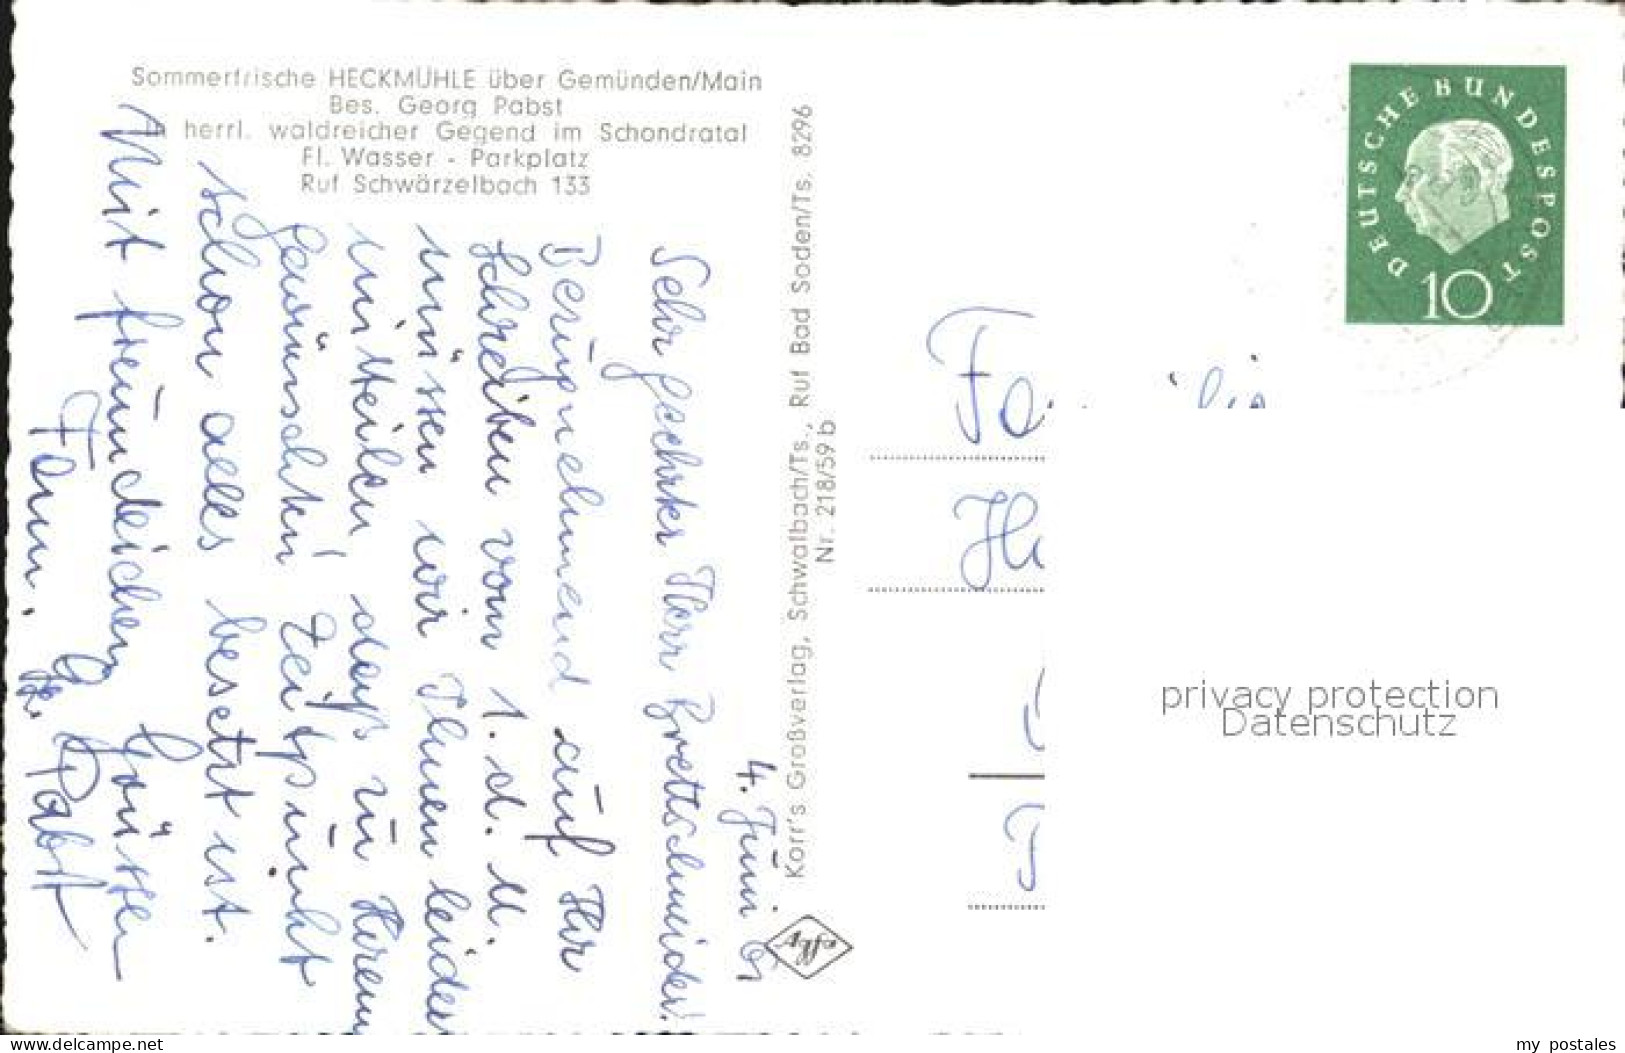 Sommerfrische HECKMÜHLE über Gemünden/Main
Bes. Georg Pabst
In herrl. waldreicher Gegend im Schondratal
Fl. Wasser - Parkplatz
Ruf Schwärzelbach 133
4. Juni 61
Sehr geehrter Herr Brettschneider!
Bezugnehmend auf Ihr
Schreiben vom 1. d. M.
müssen wir Ihnen leider
mitteilen, daß zu Ihrem
gewünschten Zeitpunkt
schon alles besetzt ist.
Mit freundlichen Grüßen
Fam. G. Pabst
Korr's Großverlag, Schwalbach/Ts., Ruf Bad Soden/Ts. 8296
Nr. 218/59 b
DEUTSCHE BUNDESPOST
10
Familie
privacy protection
Datenschutz
www.delcampe.net
my_postales